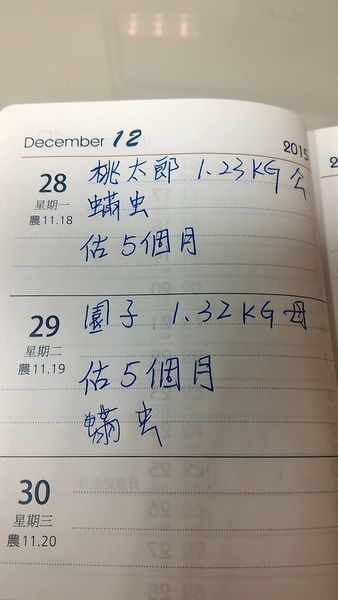 December 12
2015
28 桃太郎 1.23KG 公
星期一 蟎虫
農11.18
估5個月
29 園子 1.32KG 母
星期二
農11.19 估5個月
蟎虫
30
星期三
農11.20
2